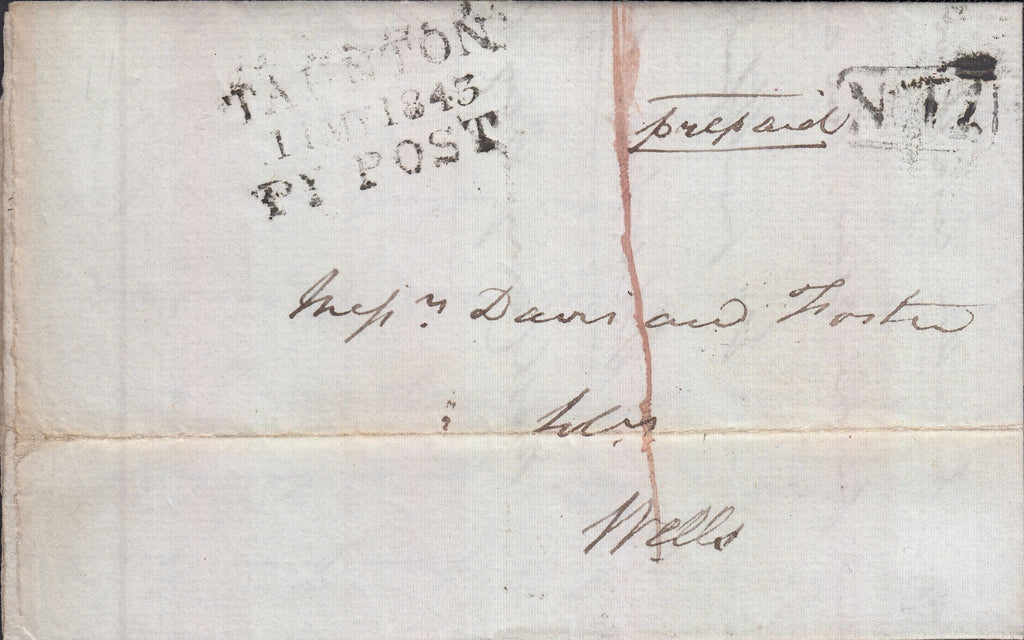 TAUNTON
11 MY 1843
PY POST
prepaid
Messrs. Davis and Foster
Solrs
Wells